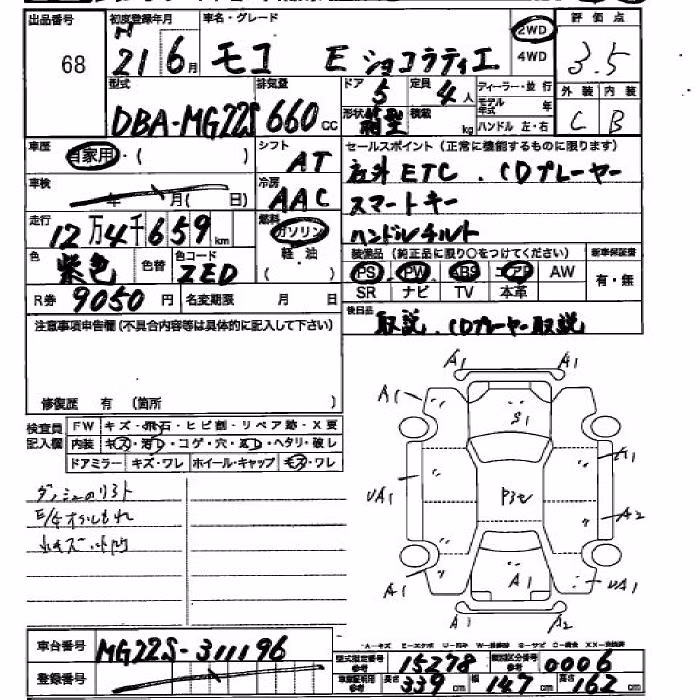 出品番号 初度登録年月 車名・グレード 評価点
68 H 21 6月 モコ E ショコラティエ 2WD 4WD 3.5
型式 排気量 ドア 5 定員 4人 ディーラー・並行 外装 内装
DBA-MG22S 660cc 形状 箱型 積載 kg モデル年式 年 ハンドル 左・右 C B
車歴 自家用・( ) シフト AT セールスポイント(正常に機能するものに限ります)
社外ETC.CDプレーヤー
車検 年 月( 日) 冷房 AAC スマートキー
走行 12万4千659km 燃料 ガソリン 軽油 ( ) ハンドルチルト
色 紫色 色替 色コード ZED 装備品(純正品に限り○をつけてください) 新車保証書
PS PW ABS エアB AW 有・無
R券 9050円 名変期限 月 日 SR ナビ TV 本革
注意事項申告欄(不具合内容等は具体的に記入して下さい) 後日品 取説.CDプレーヤー取説
修復歴 有 (箇所 )
検査員記入欄 FW キズ・飛石・ヒビ割・リペア跡・X要
内装 キズ・汚レ・コゲ・穴・ ・ヘタリ・破レ
ドアミラー キズ・ワレ ホイール・キャップ キズ・ワレ
小キズ.小凹
A1 A1
A1 S1
A1
UA1 A2
A1 A1 UA1
A1 A2
車台番号 MG22S-311196
登録番号
型式指定番号 参考 15278 類別区分番号 参考 0006
車庫証明用 参考 長さ 339cm 幅 147cm 高さ 162cm